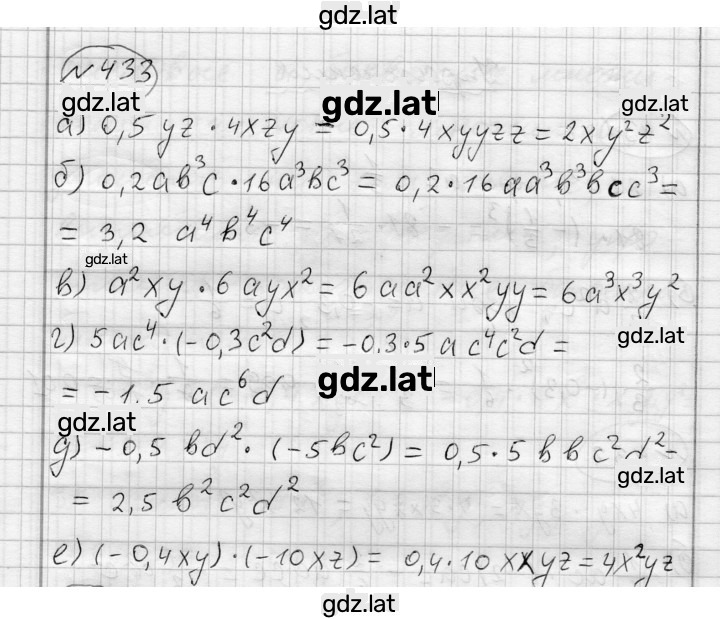 gdz.lat
№433
gdz.lat gdz.lat gdz.lat
а) 0,5 yz · 4xzy = 0,5 · 4xyyzz = 2xy²z²
б) 0,2ab³c · 16a³bc³ = 0,2 · 16aa³b³bcc³ =
= 3,2 a⁴b⁴c⁴
gdz.lat
в) a²xy · 6ayx² = 6aa²xx²yy = 6a³x³y²
gdz.lat
г) 5ac⁴ · (-0,3c²d) = -0.3·5ac⁴c²d =
gdz.lat
= -1.5 ac⁶d
gdz.lat
д) -0,5 bd² · (-5bc²) = 0,5·5bbc²d² =
gdz.lat
= 2,5 b²c²d²
е) (-0,4xy) · (-10xz) = 0,4·10xxyz = 4x²yz
gdz.lat